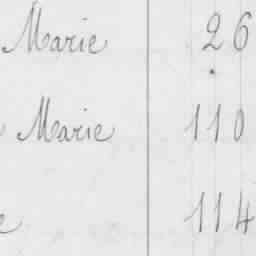 Marie 26
Marie 110
114